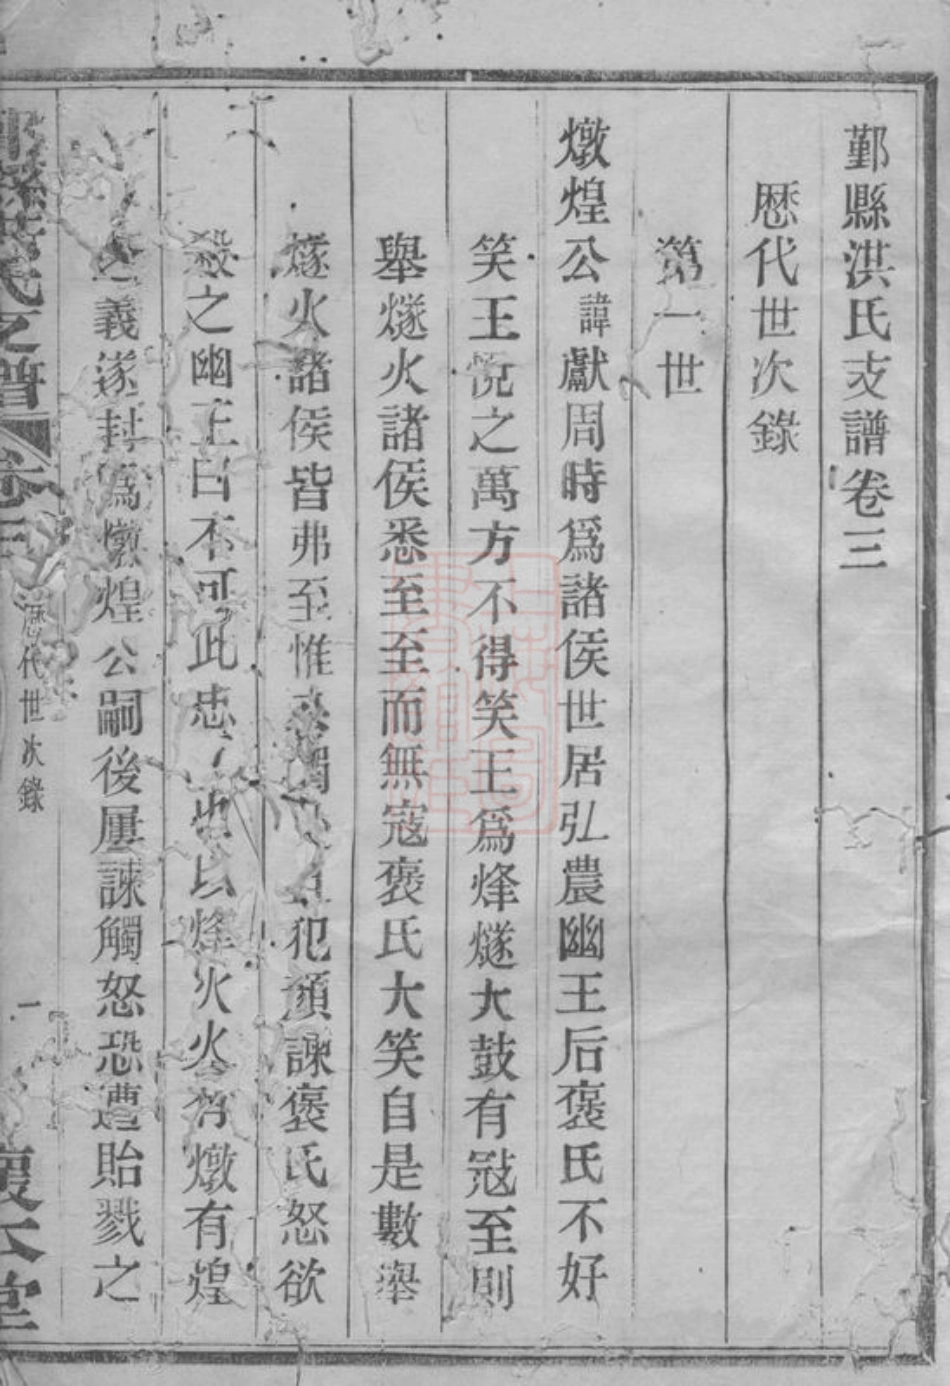 鄞縣洪氏支譜卷三
歷代世次錄
第一世
燉煌公諱獻周時爲諸侯世居弘農幽王后褒氏不好
笑王悅之萬方不得笑王爲烽燧大鼓有寇至則
舉燧火諸侯悉至至而無寇褒氏大笑自是數舉
燧火諸侯皆弗至惟獨犯顏諫褒氏怒欲
殺之幽王曰不可此忠也以烽火火有燉有煌
之義遂封爲燉煌公嗣後屢諫觸怒恐遭貽戮之
鄞縣洪氏支譜 卷三 歷代世次錄 一 堂